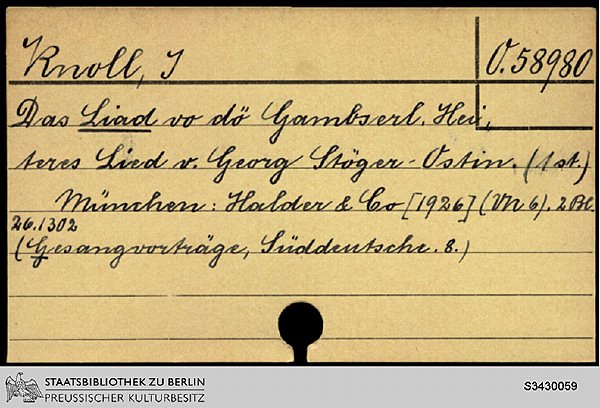 Knoll, J
O. 58980
Das Liad vo dö Gambserl. Hei,
teres Lied v. Georg Stöger-Ostin. (1st.)
München: Halder & Co [1926] (Vn 6). 2 Bl.
26.1302
(Gesangvorträge, Süddeutsche. 8.)
STAATSBIBLIOTHEK ZU BERLIN
PREUSSISCHER KULTURBESITZ
S3430059